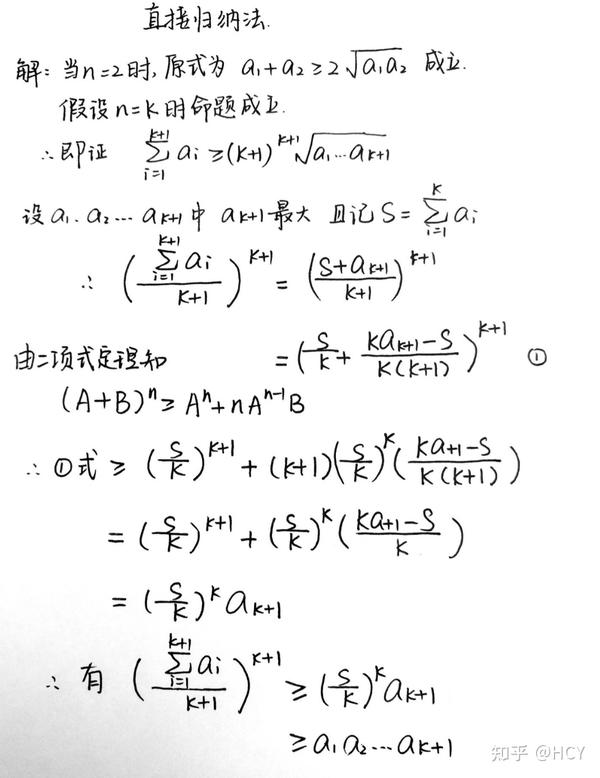 直接归纳法.
解: 当n=2时, 原式为 a₁+a₂≥2√(a₁a₂) 成立.
假设n=K时命题成立.
∴即证 ∑_{i=1}^{K+1} aᵢ ≥(K+1) ^{K+1}√(a₁…a_{K+1})
设a₁.a₂…a_{K+1}中 a_{K+1}最大 且记S=∑_{i=1}^{K} aᵢ
∴ (∑_{i=1}^{K+1} aᵢ / K+1)^{K+1} = (S+a_{K+1} / K+1)^{K+1}
由二项式定理知 =(S/K + Ka_{K+1}-S / K(K+1))^{K+1} ①
(A+B)ⁿ≥Aⁿ+nA^{n-1}B
∴①式 ≥ (S/K)^{K+1} + (K+1)(S/K)^K (Ka_{+1}-S / K(K+1))
= (S/K)^{K+1} + (S/K)^K (Ka_{+1}-S / K)
= (S/K)^K a_{K+1}
∴ 有 (∑_{i=1}^{K+1} aᵢ / K+1)^{K+1} ≥ (S/K)^K a_{K+1}
≥a₁a₂…a_{K+1}
知乎 @HCY